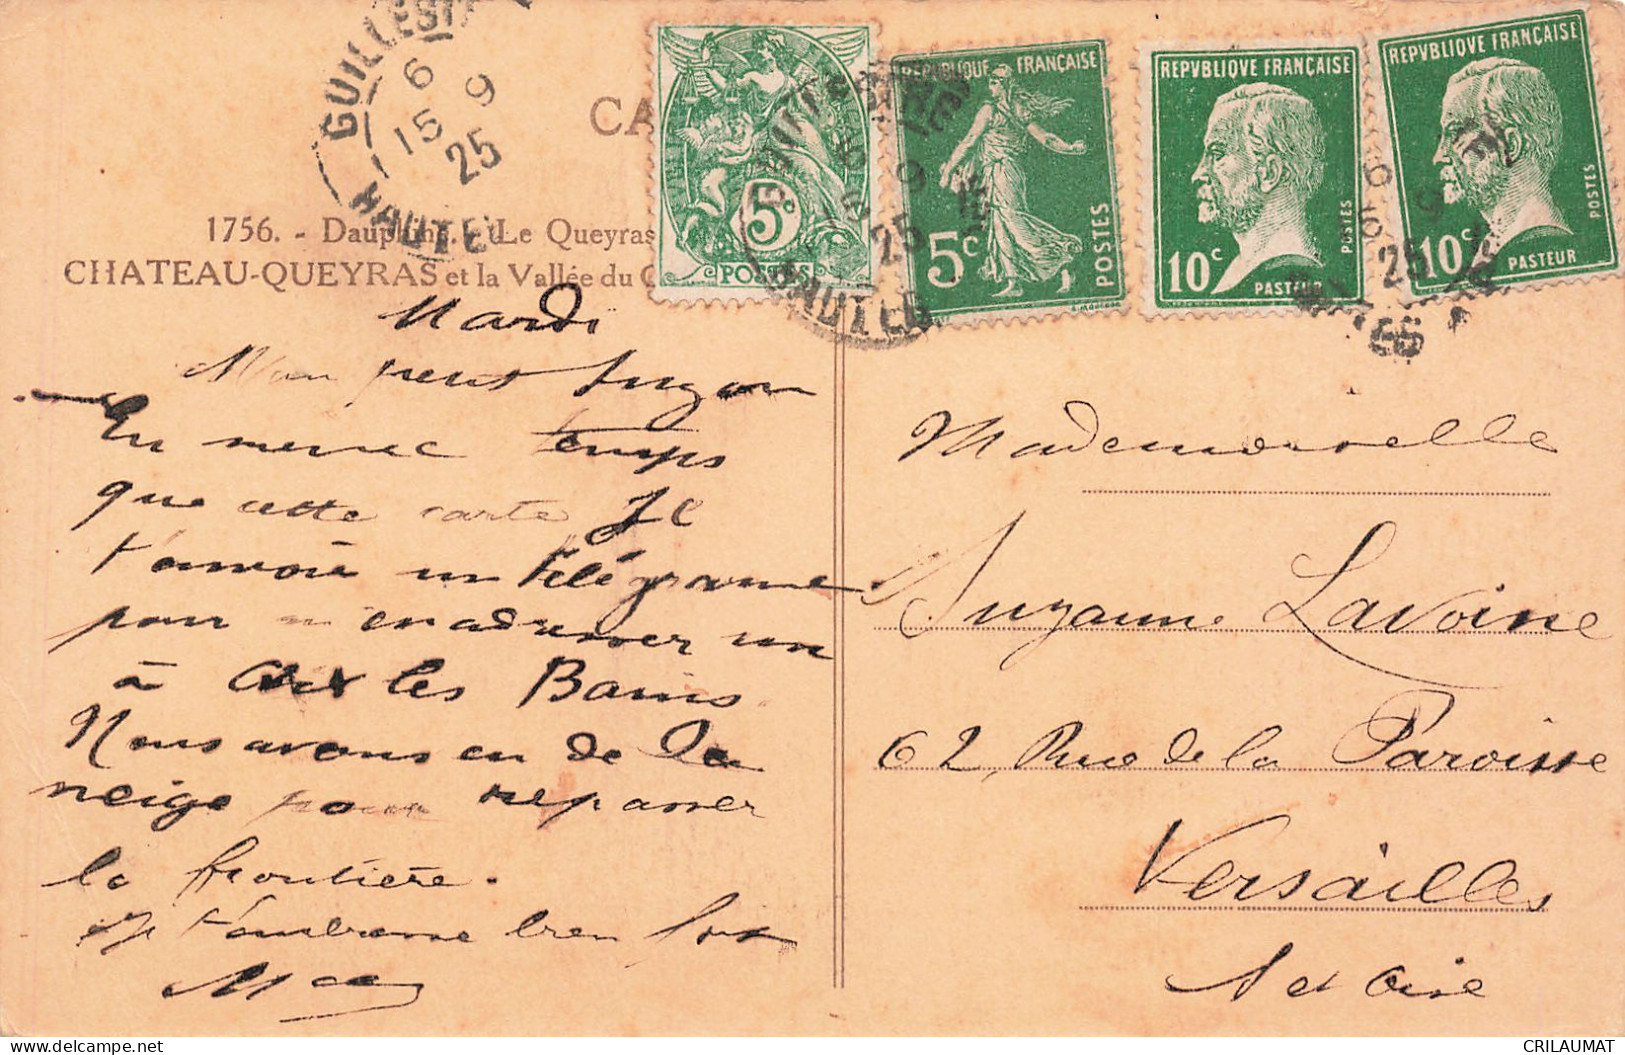 GUILLESTR
6
15 9
25
HAUTE
CA
1756. - Dauphiné. - Le Queyras
CHATEAU-QUEYRAS et la Vallée du G
5c
POSTES
REPUBLIQUE FRANÇAISE
5c
POSTES
REPVBLIQVE FRANÇAISE
10c
POSTES
PASTEUR
REPVBLIQVE FRANÇAISE
10c
POSTES
PASTEUR
25
HAUTE
25
Mardi
Mon petit Suzon
En même temps
que cette carte je
t'envoie un télégramme
pour m'en adresser un
à Aix les Bains
Nous avons eu de la
neige pour repasser
la frontière.
Je t'embrasse bien fort
Mademoiselle
Suzanne Lavoine
62, Rue de la Paroisse
Versailles
S et Oise
delcampe.net
CRILAUMAT